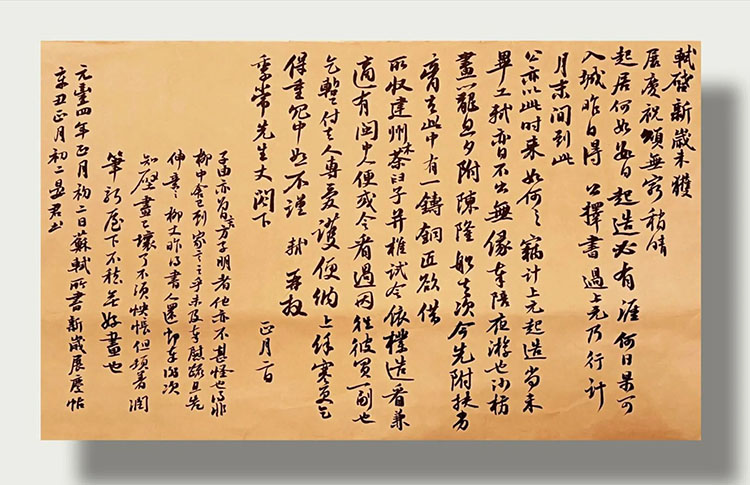 軾啓新歲未獲
展慶祝頌無窮稍晴
起居何如數日起造必有涯何日果可
入城昨日得 公擇書過上元乃行計
月末間到此
公亦以此时来如何〻竊計上元起造尚未
畢工軾亦自不出無緣奉陪夜游也沙枋
畫籠旦夕附陳隆船去次今先附扶劣
膏去此中有一鑄銅匠欲借
所收建州木茶臼子并椎試令依樣造看兼
適有閩中人便或令看過因往彼買一副也
乞暫付去人專愛護便納上餘寒更乞
保重冗中恕不謹 軾再拜
季常先生丈閤下 正月二日
子由亦曾言方子明者他亦不甚怪也得非
柳中舍已到家言之乎未及奉慰疏且告
伸意〻柳丈昨得書人還即奉謝次
知壁畫已壞了不須怏悵但頓著潤
筆新屋下不愁無好畫也
元豐四年正月初二日蘇軾所書新歲展慶帖
辛丑正月初二昱君书